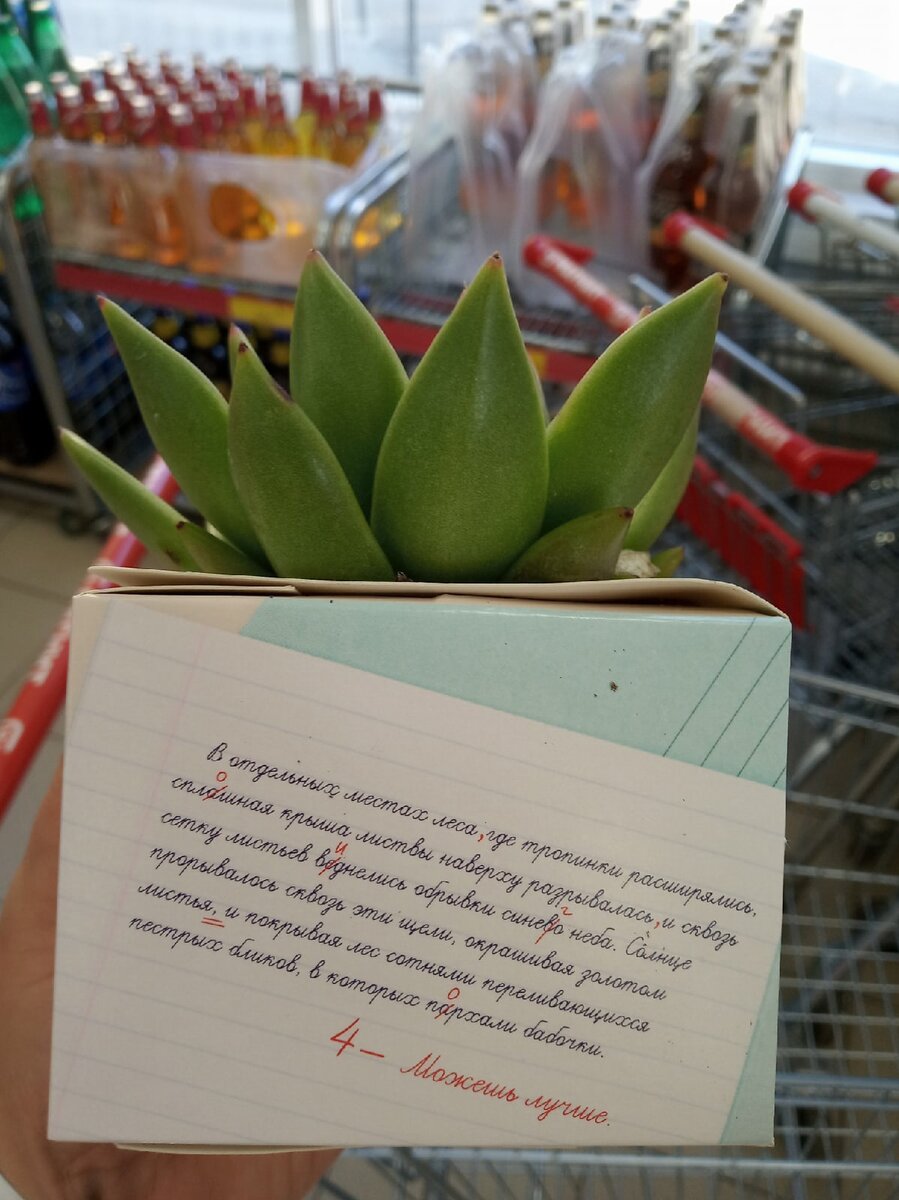 В отдельных местах леса, где тропинки расширялись,
о
сплашная крыша листвы наверху разрывалась, и сквозь
и г
сетку листьев веднелись обрывки синево неба. Солнце
прорывалось сквозь эти щели, окрашивая золотом
листья, и покрывая лес сотнями переливающихся
о
пестрых бликов, в которых пархали бабочки.
4 – Можешь лучше.